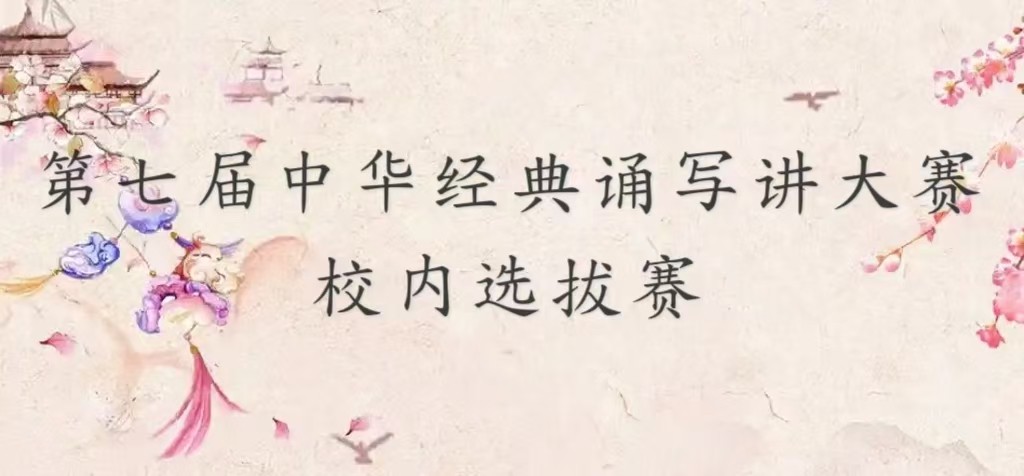 第七届中华经典诵写讲大赛
校内选拔赛